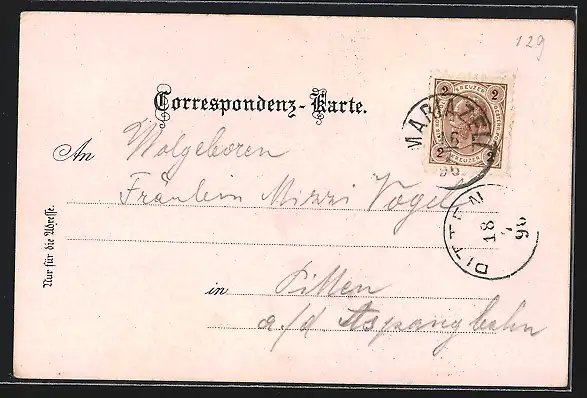 129
Correspondenz-Karte.
2 KREUZER 2
2 KREUZER 2
MARIAZELL
6
96
An Wolgeboren
Fräulein Mizzi Vogel
PITTEN
18
7
96
Nur für die Adresse.
in Pitten
a./d. Aspangbahn